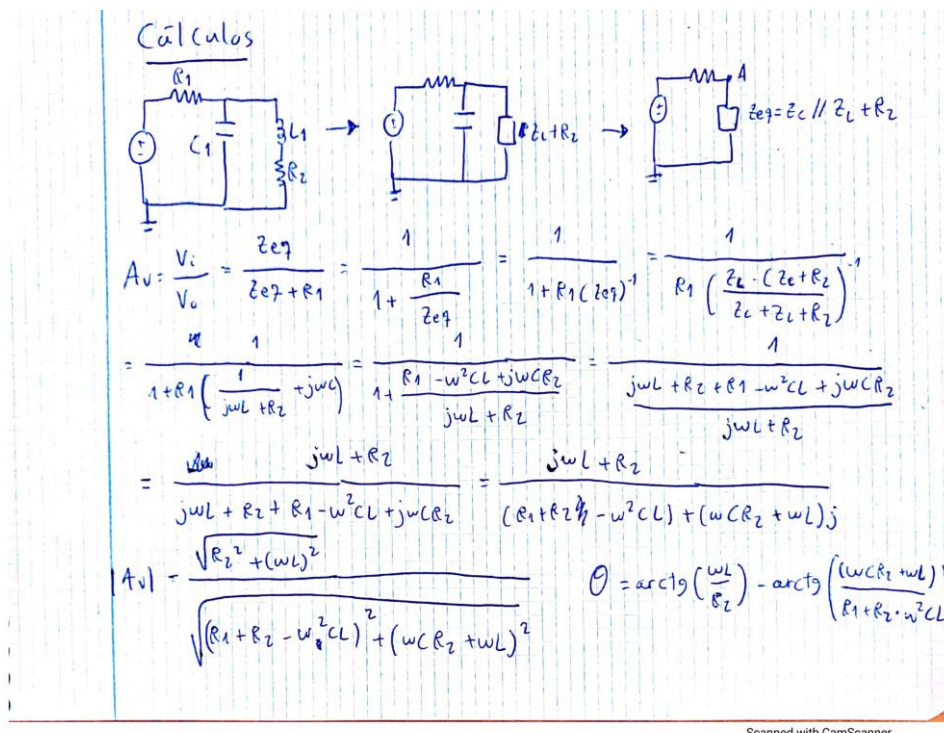 Cálculos
R1 C1 L1 R2 → ZL+R2 → A Zeq = Zc // ZL + R2
Av = Vi/Vo = Zeq/(Zeq + R1) = 1/(1 + R1/Zeq) = 1/(1 + R1(Zeq)^-1) = 1/(R1 (Zc · (Ze + R2)/(Zc + ZL + R2))^-1)
= 1/(1 + R1(1/(jwL + R2) + jwC)) = 1/(1 + (R1 - w²CL + jwCR2)/(jwL + R2)) = 1/((jwL + R2 + R1 - w²CL + jwCR2)/(jwL + R2))
= (jwL + R2)/(jwL + R2 + R1 - w²CL + jwCR2) = (jwL + R2)/((R1 + R2 - w²CL) + (wCR2 + wL)j)
|Av| = √(R2² + (wL)²)/√((R1 + R2 - w²CL)² + (wCR2 + wL)²) θ = arctg(wL/R2) - arctg((wCR2 + wL)/(R1 + R2 · w²CL
Scanned with CamScanner